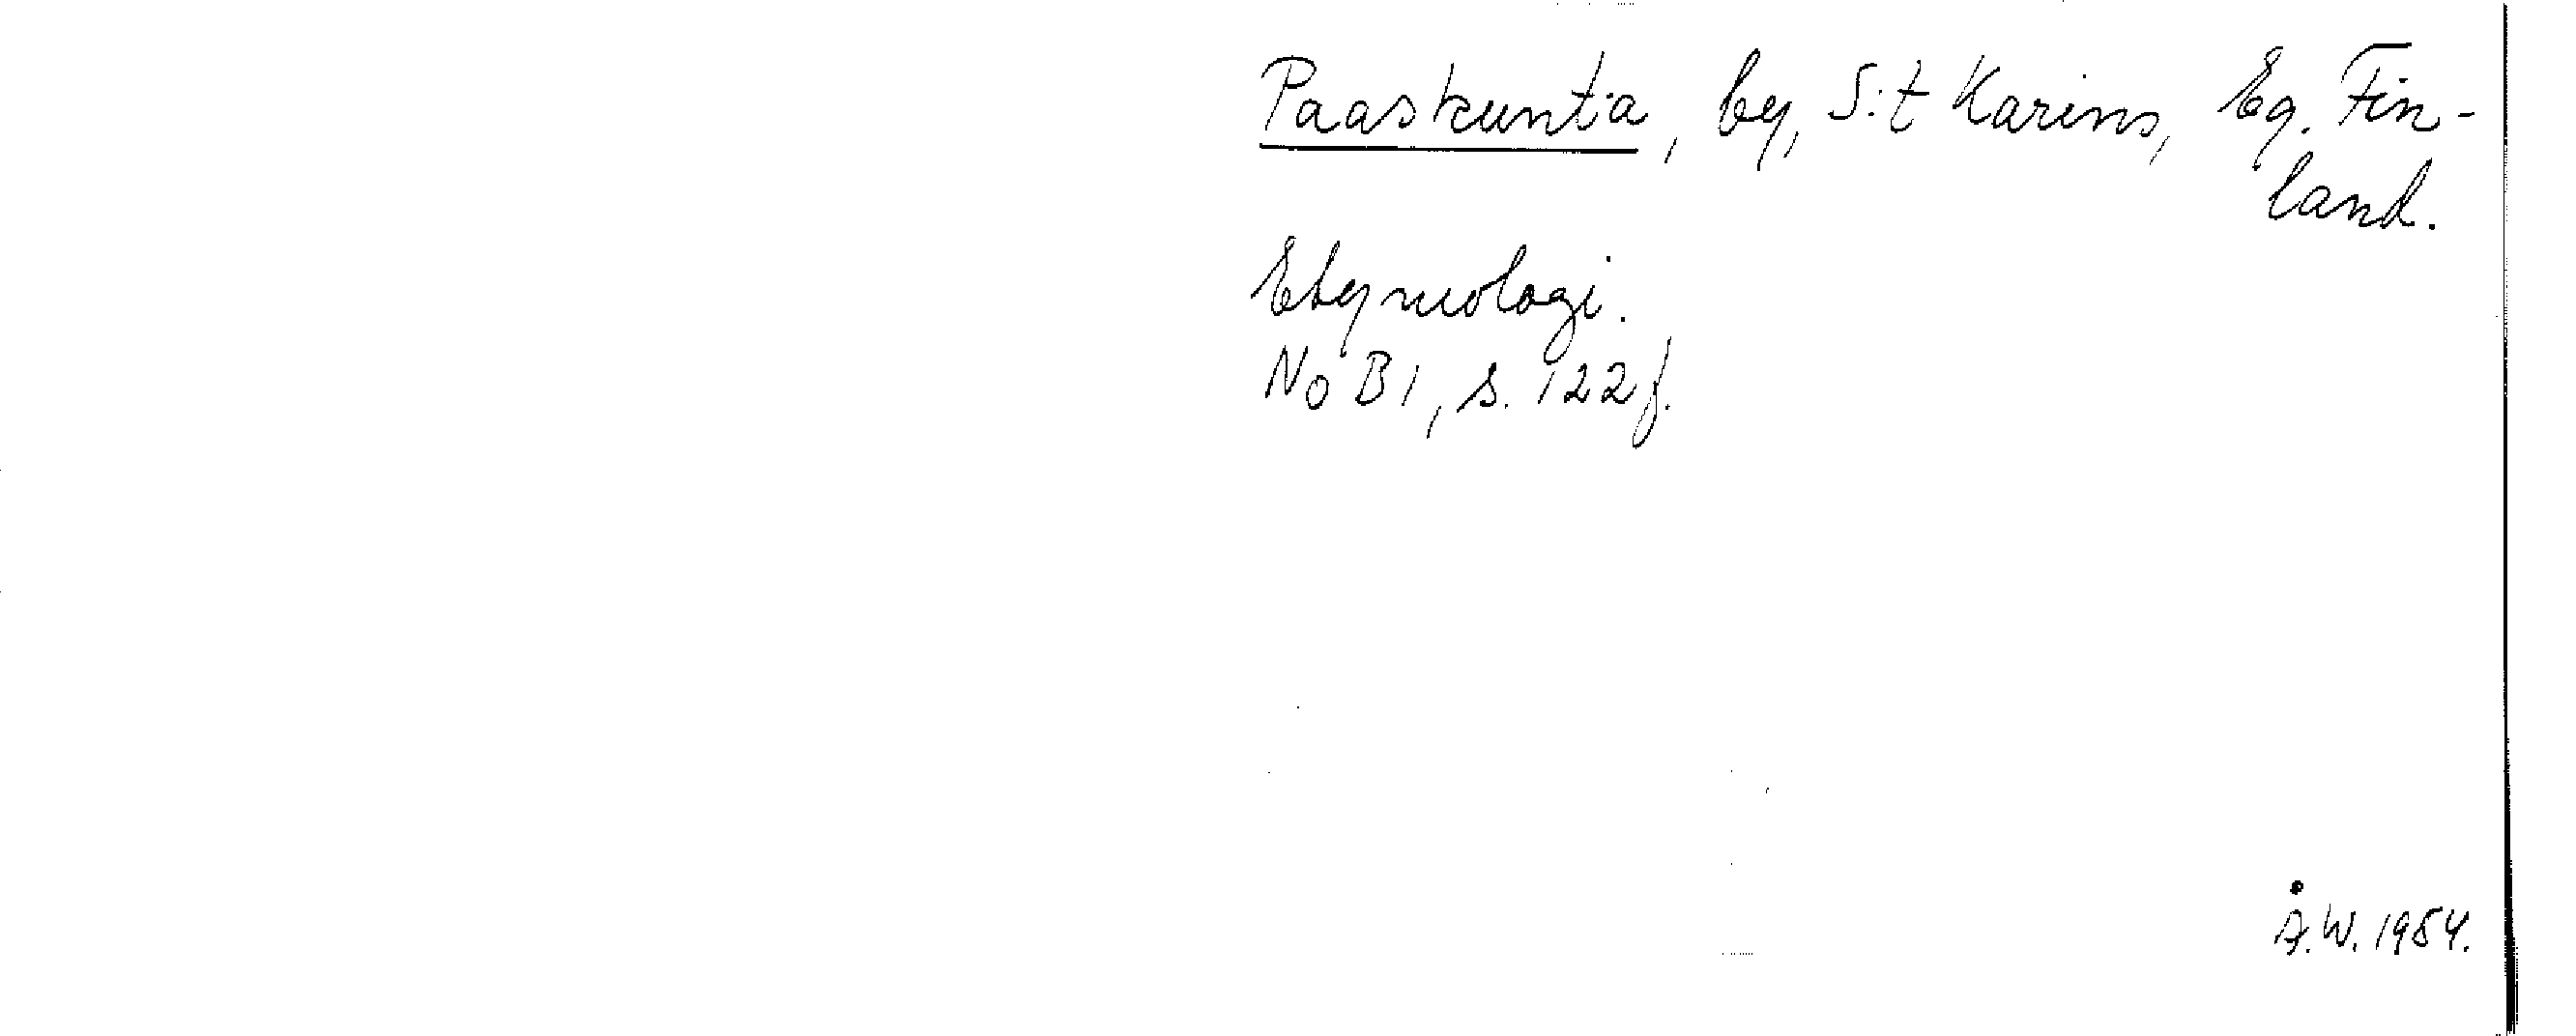 Paaskunta, by, S:t Karins, Eg. Fin-
land.
Etymologi.
NoB 1, s. 122 f.
Å.W. 1954.